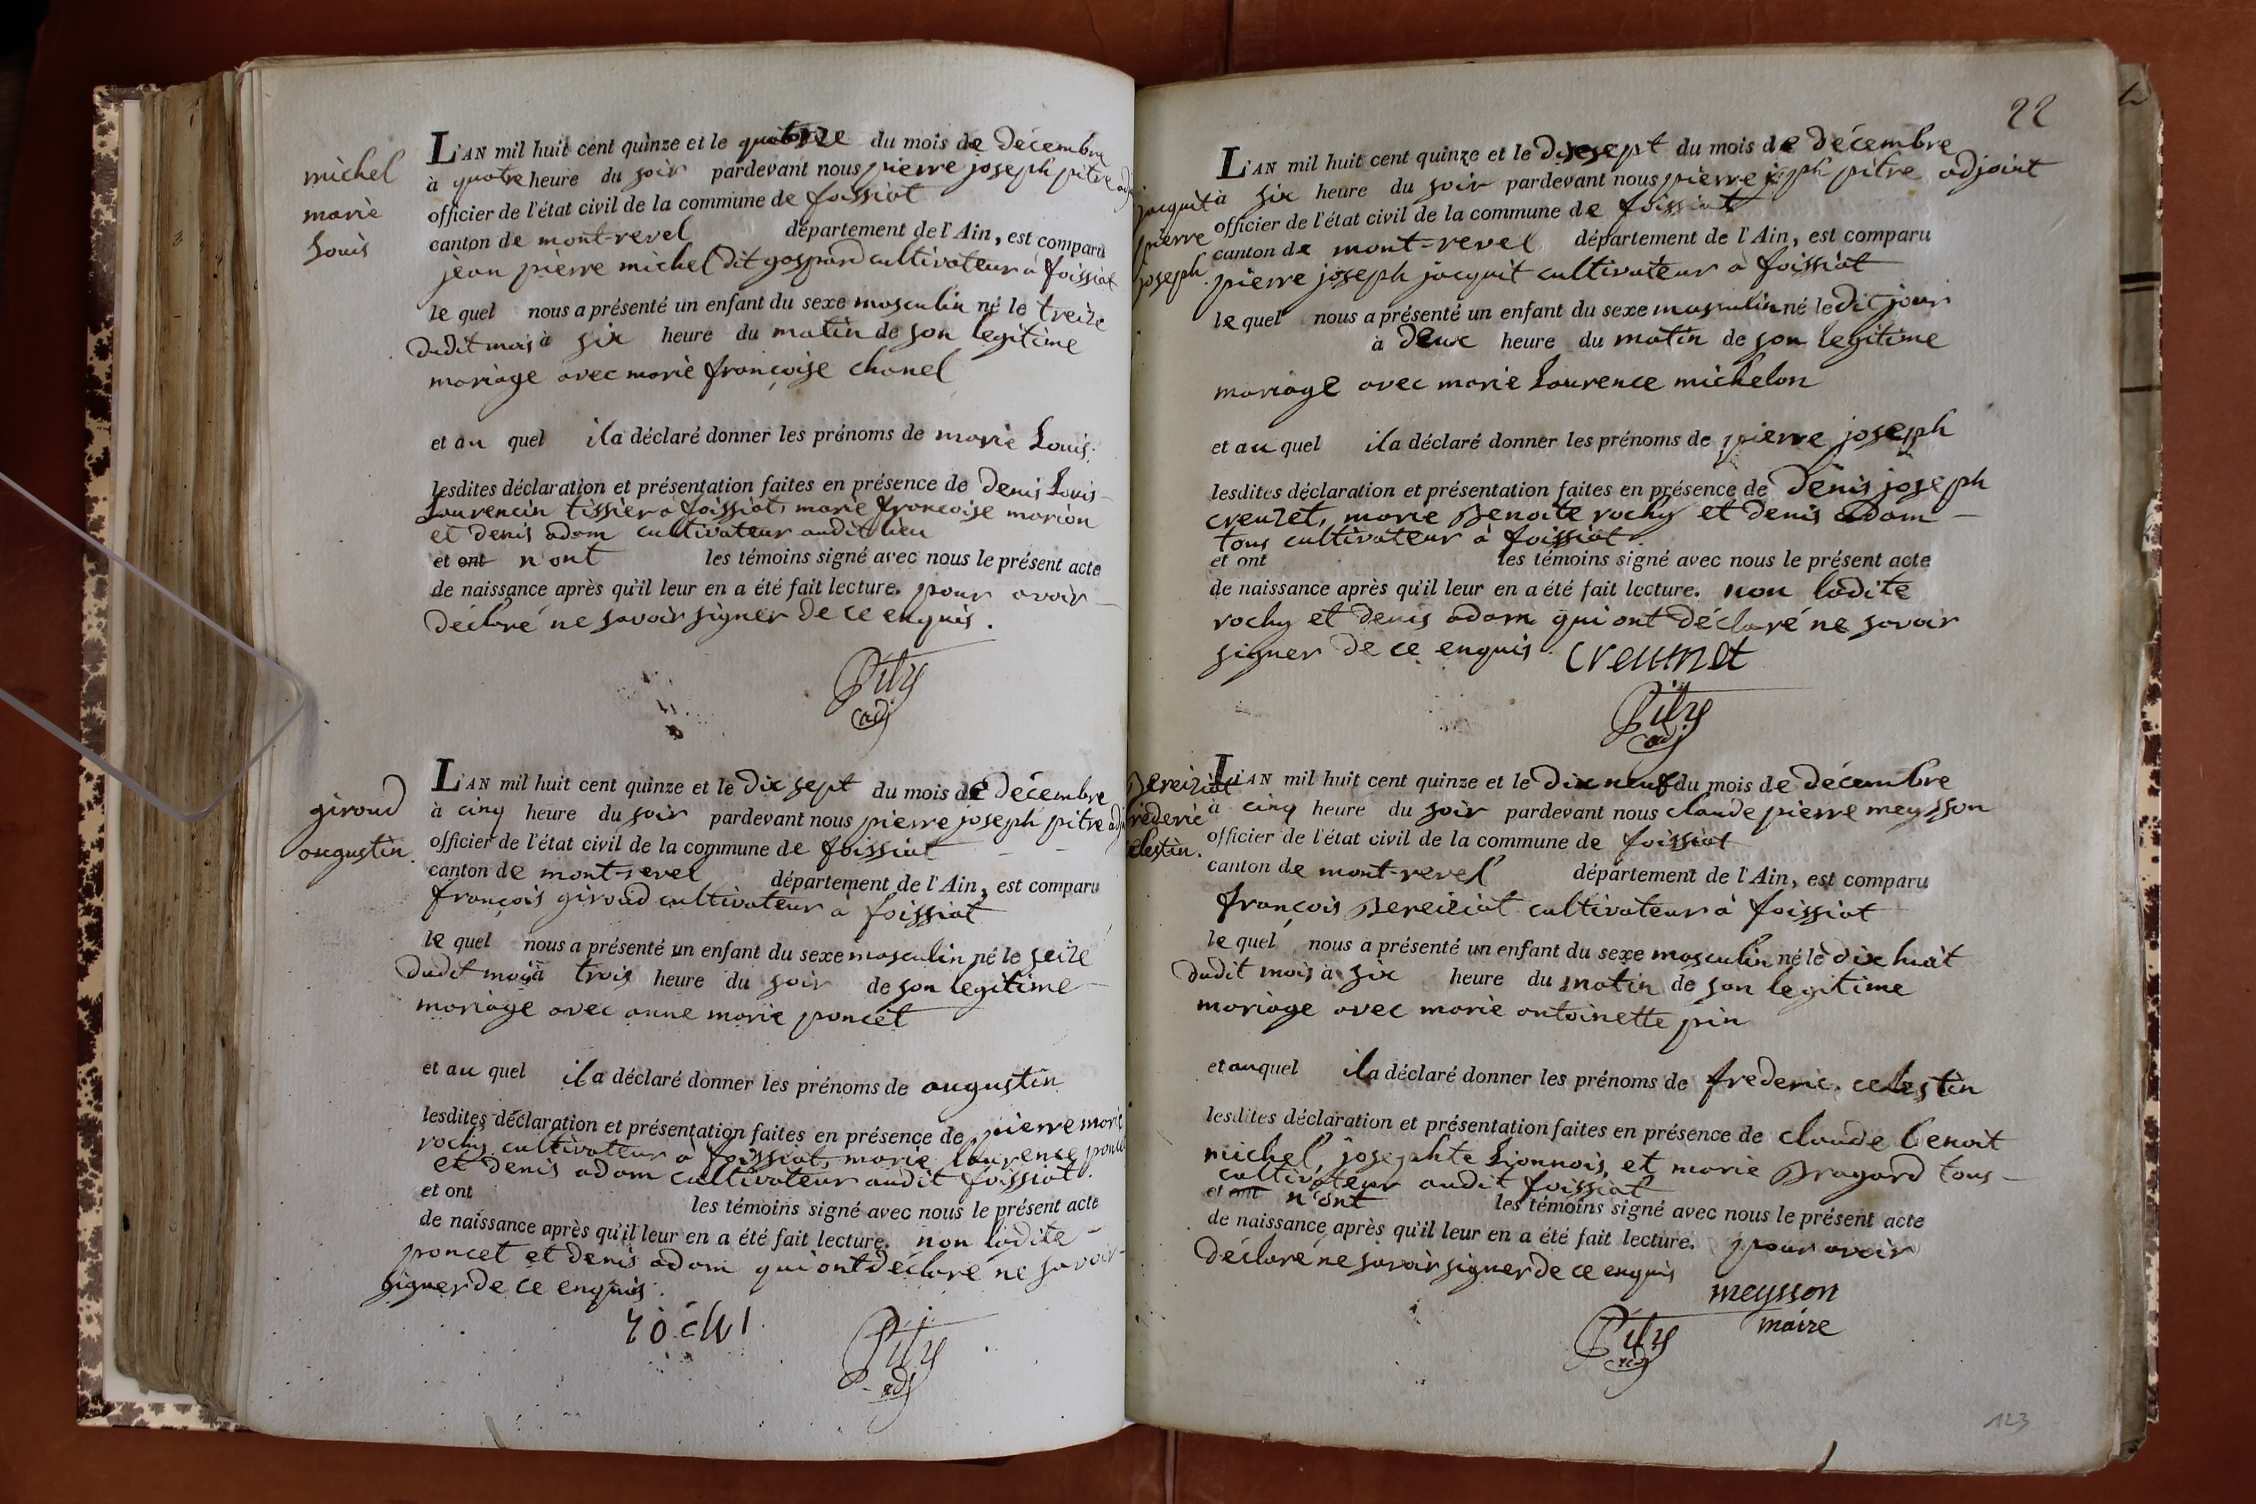 michel
marie
Louis
L'AN mil huit cent quinze et le quatorze du mois de décembre
à quatre heure du soir pardevant nous pierre joseph pitre adj
officier de l'état civil de la commune de foissiat
canton de mont-revel département de l'Ain, est comparu
jean pierre michel dit gaspard cultivateur à foissiat
le quel nous a présenté un enfant du sexe masculin né le treize
dudit mois à six heure du matin de son legitime
mariage avec marie françoise chanel
et au quel il a déclaré donner les prénoms de marie Louis.
lesdites déclaration et présentation faites en présence de denis Louis
Laurencin tissier à foissiat, marie françoise marion
et denis adam cultivateur audit lieu
et ont n'ont les témoins signé avec nous le présent acte
de naissance après qu'il leur en a été fait lecture. pour avoir
déclaré ne savoir signer de ce enquis.
Pitre
adj
giroud
augustin.
L'AN mil huit cent quinze et le dix sept du mois de décembre
à cinq heure du soir pardevant nous pierre joseph pitre adj
officier de l'état civil de la commune de foissiat
canton de mont-revel département de l'Ain, est comparu
françois giroud cultivateur à foissiat
le quel nous a présenté un enfant du sexe masculin né le seize
dudit mois à trois heure du soir de son legitime
mariage avec anne marie poncet
et au quel il a déclaré donner les prénoms de augustin
lesdites déclaration et présentation faites en présence de pierre marie
rochy cultivateur à foissiat, marie laurence poncet
et denis adam cultivateur audit foissiat.
et ont les témoins signé avec nous le présent acte
de naissance après qu'il leur en a été fait lecture. non ladite
poncet et denis adam qui ont déclaré ne savoir
signer de ce enquis.
Pitre
adj
22
jacquit
pierre
joseph.
L'AN mil huit cent quinze et le dixsept du mois de décembre
à six heure du soir pardevant nous pierre jph pitre adjoint
officier de l'état civil de la commune de foissiat
canton de mont-revel département de l'Ain, est comparu
pierre joseph jacquit cultivateur à foissiat
le quel nous a présenté un enfant du sexe masculin né ledit jour
à deux heure du matin de son legitime
mariage avec marie Laurence michelon
et au quel il a déclaré donner les prénoms de pierre joseph
lesdites déclaration et présentation faites en présence de denis joseph
creuzet, marie Benoite rochy et denis adam
tous cultivateur à foissiat.
et ont les témoins signé avec nous le présent acte
de naissance après qu'il leur en a été fait lecture. non ladite
rochy et denis adam qui ont déclaré ne savoir
signer de ce enquis.
Pitre
adj
Bereiziat
frederic
celestin.
L'AN mil huit cent quinze et le dix neuf du mois de décembre
à cinq heure du soir pardevant nous claude pierre meysson
officier de l'état civil de la commune de foissiat
canton de mont-revel département de l'Ain, est comparu
françois Bereiziat cultivateur à foissiat
le quel nous a présenté un enfant du sexe masculin né le dix huit
dudit mois à six heure du matin de son legitime
mariage avec marie antoinette pin
et auquel il a déclaré donner les prénoms de frederic celestin
lesdites déclaration et présentation faites en présence de claude benoit
michel, josephte Lionnois, et marie Bragard tous
cultivateur audit foissiat
et ont n'ont les témoins signé avec nous le présent acte
de naissance après qu'il leur en a été fait lecture. pour avoir
déclaré ne savoir signer de ce enquis
meysson
maire
Pitre
adj
123